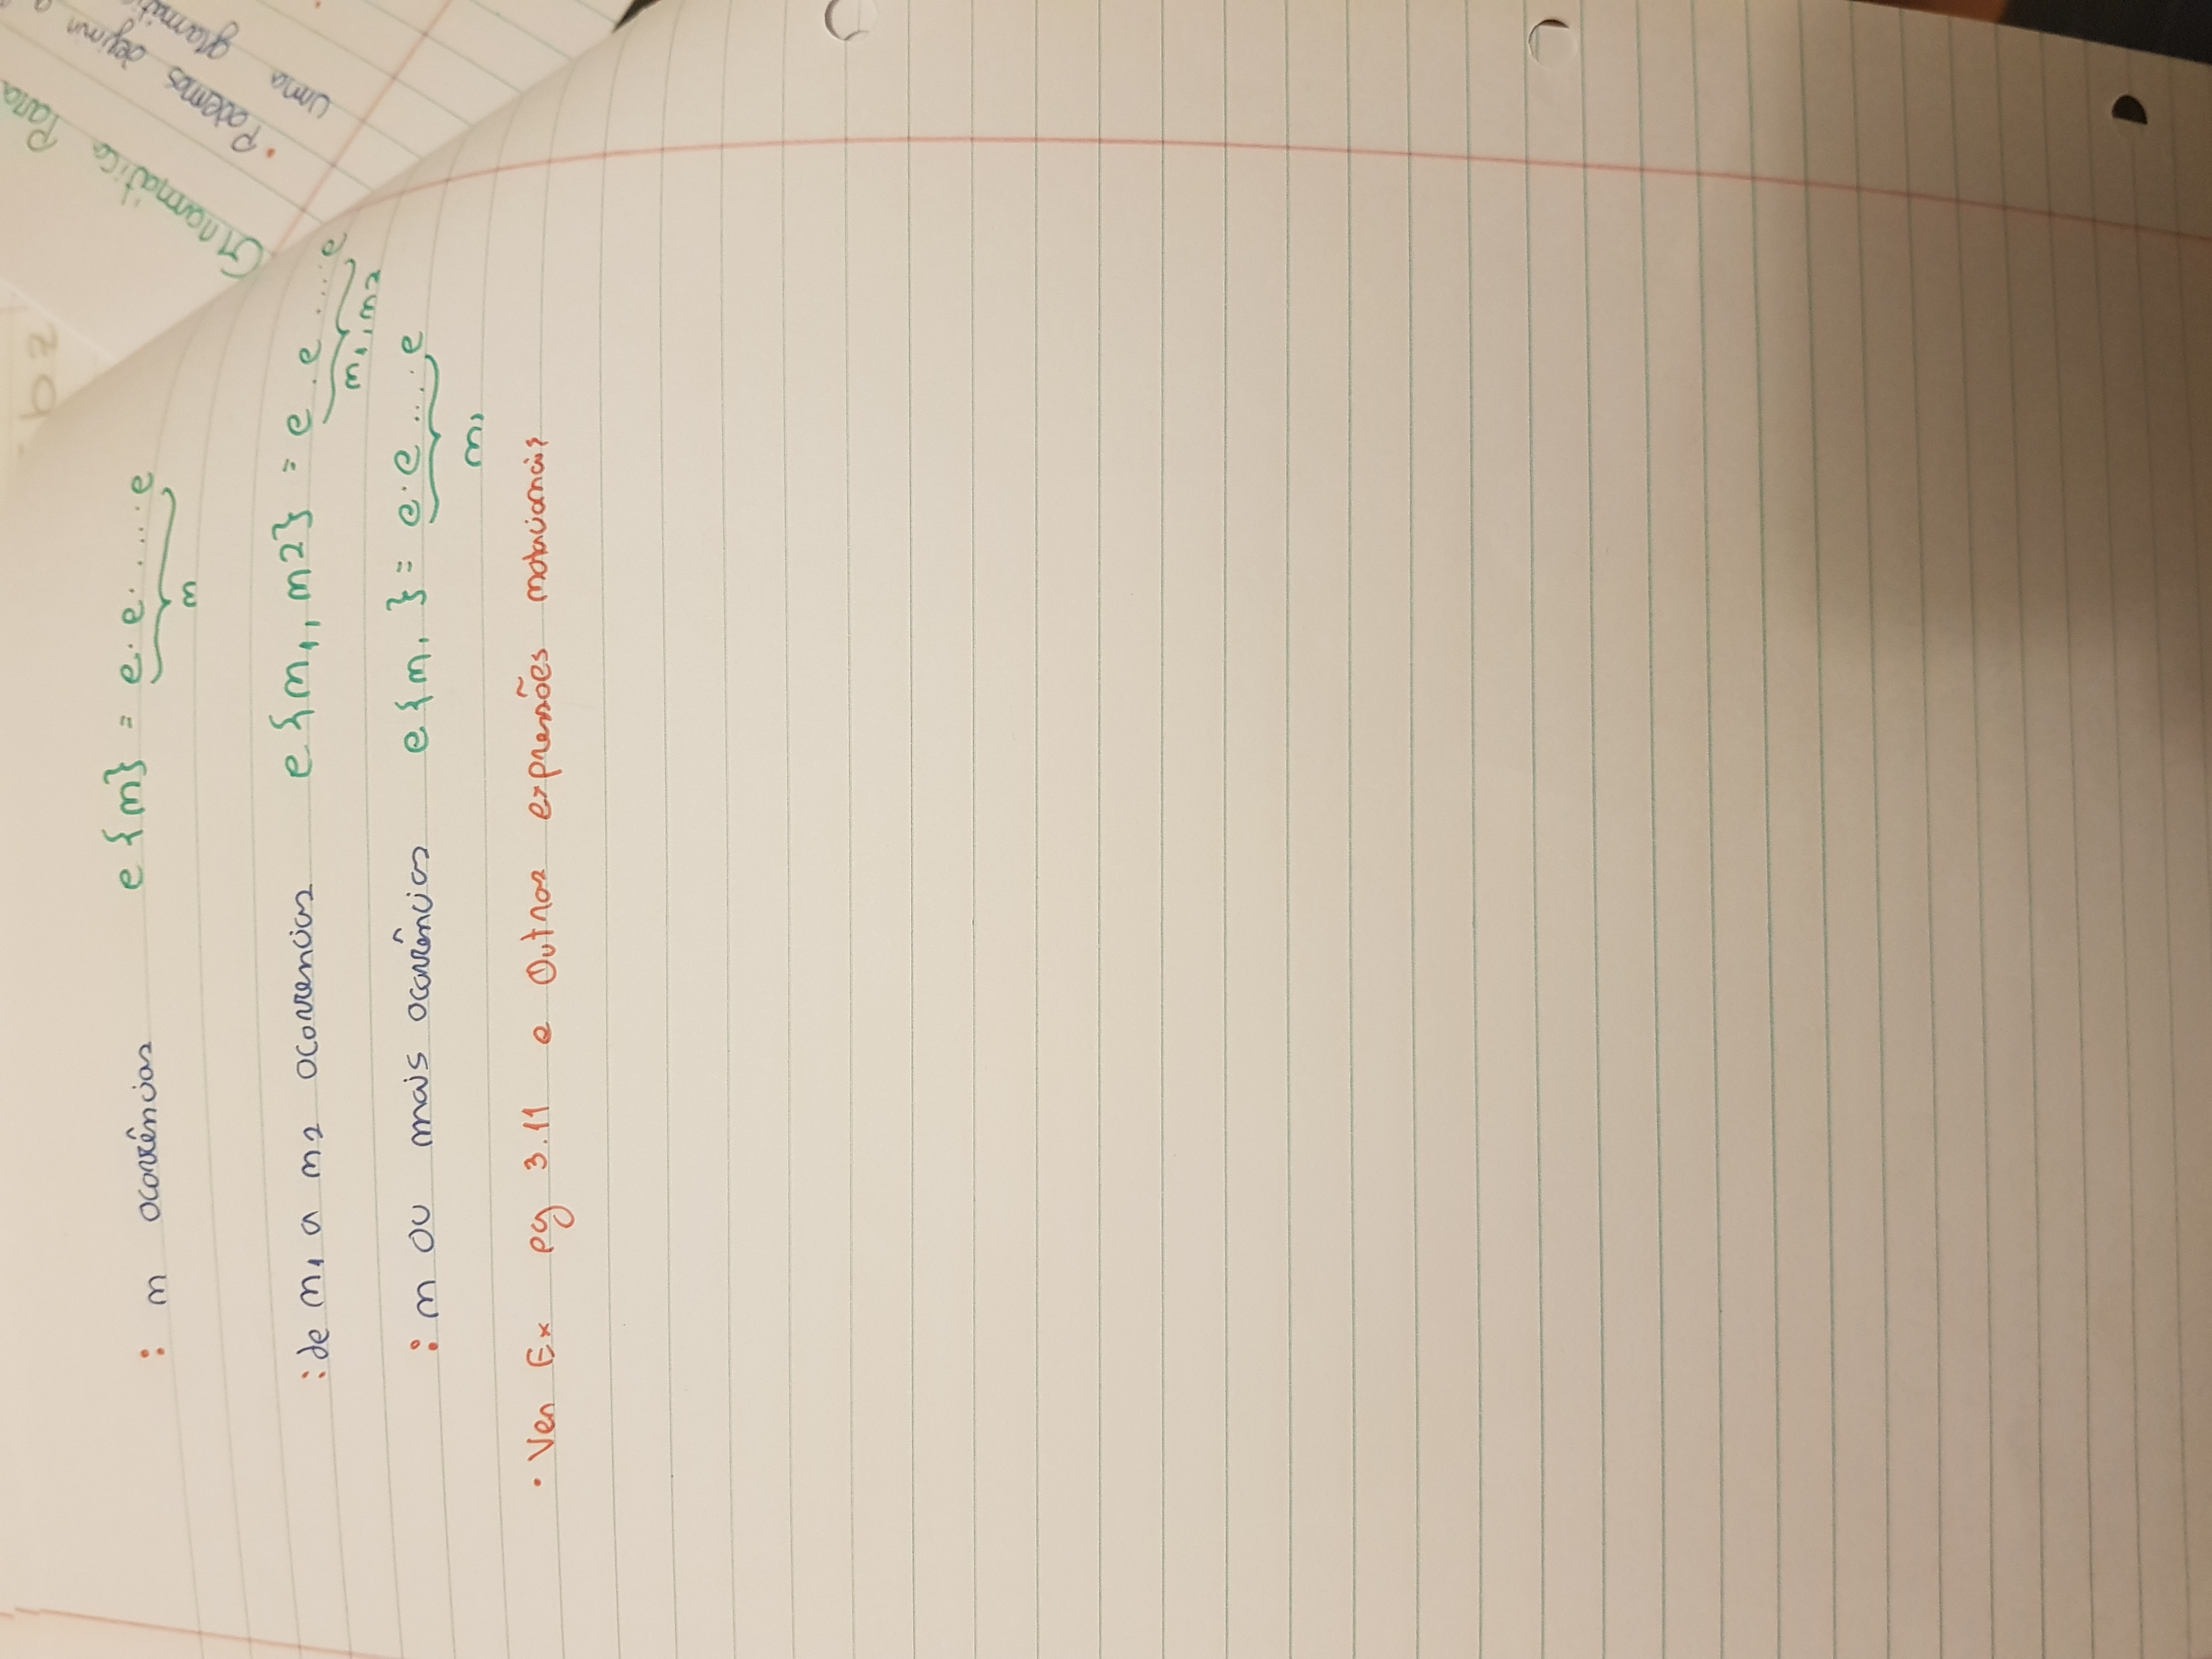 : n ocorrências e{n} = e.e.....e
n
: de n1 a n2 ocorrencias e{n1, n2} = e.e....e
n1,n2
: n ou mais ocorrências e{n, } = e.e....e
n,
• Ver Ex pg 3.11 e Outras expressões notacionais
Gramática Para
• Podemos definir a
uma gramáti